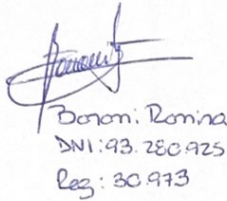 Boroni Romina
DNI: 93.280.925
Reg: 30.973